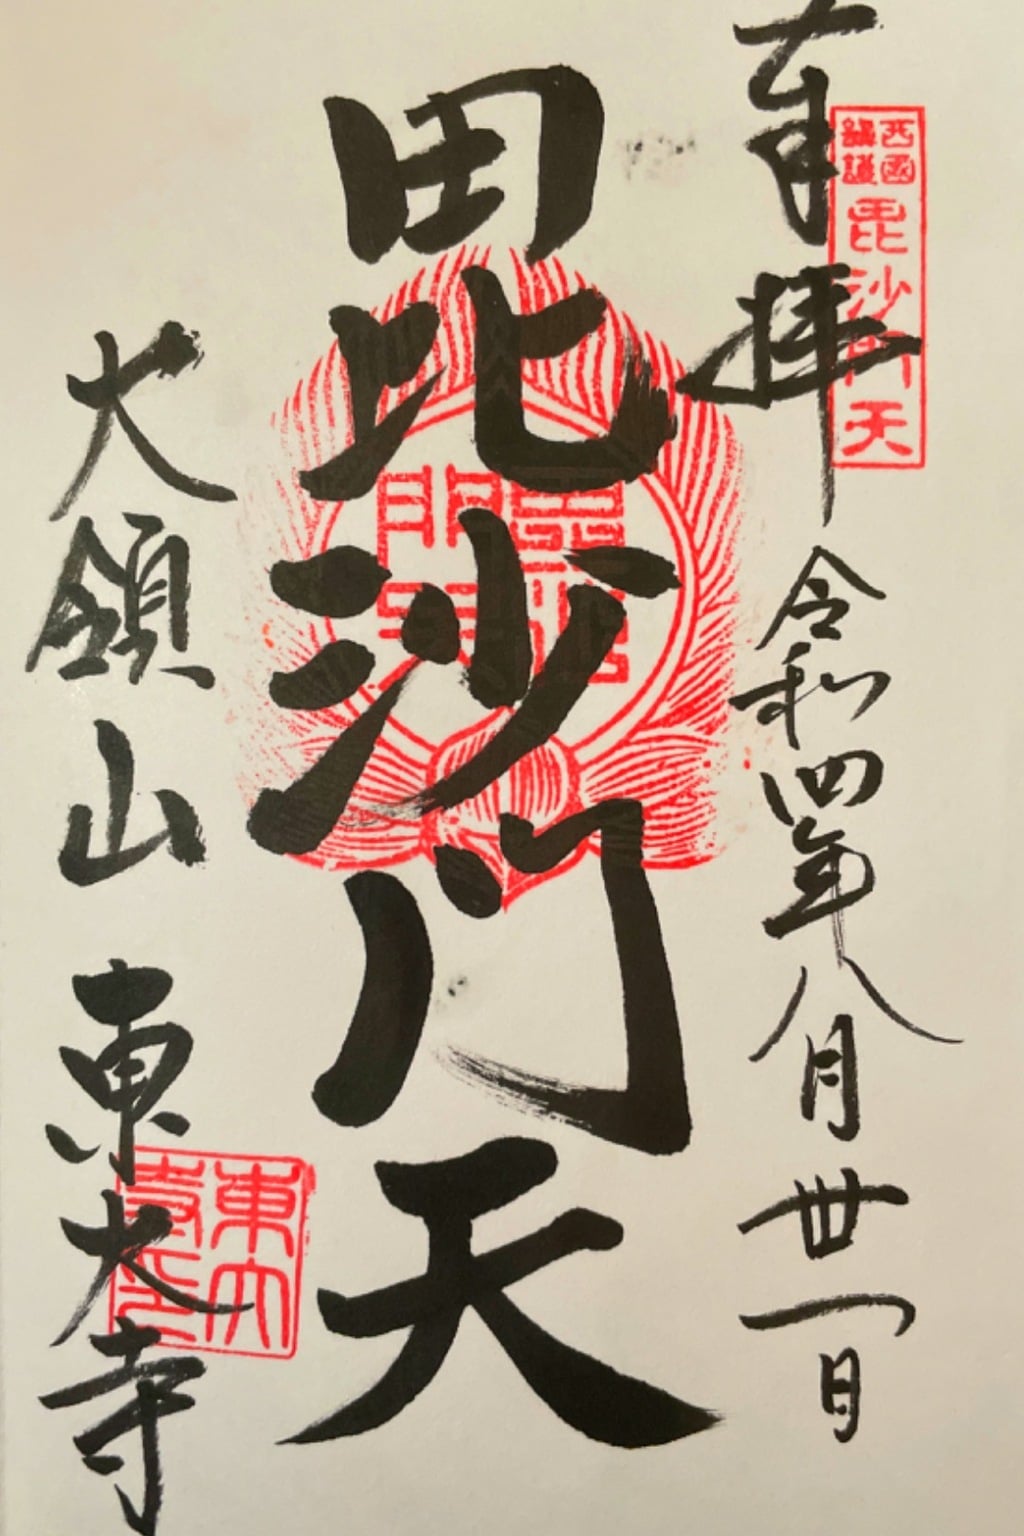 奉拝
令和四年八月丗一日
西國
鎮護
毘沙門天
毘沙門天
大領山
東大寺
東大寺印